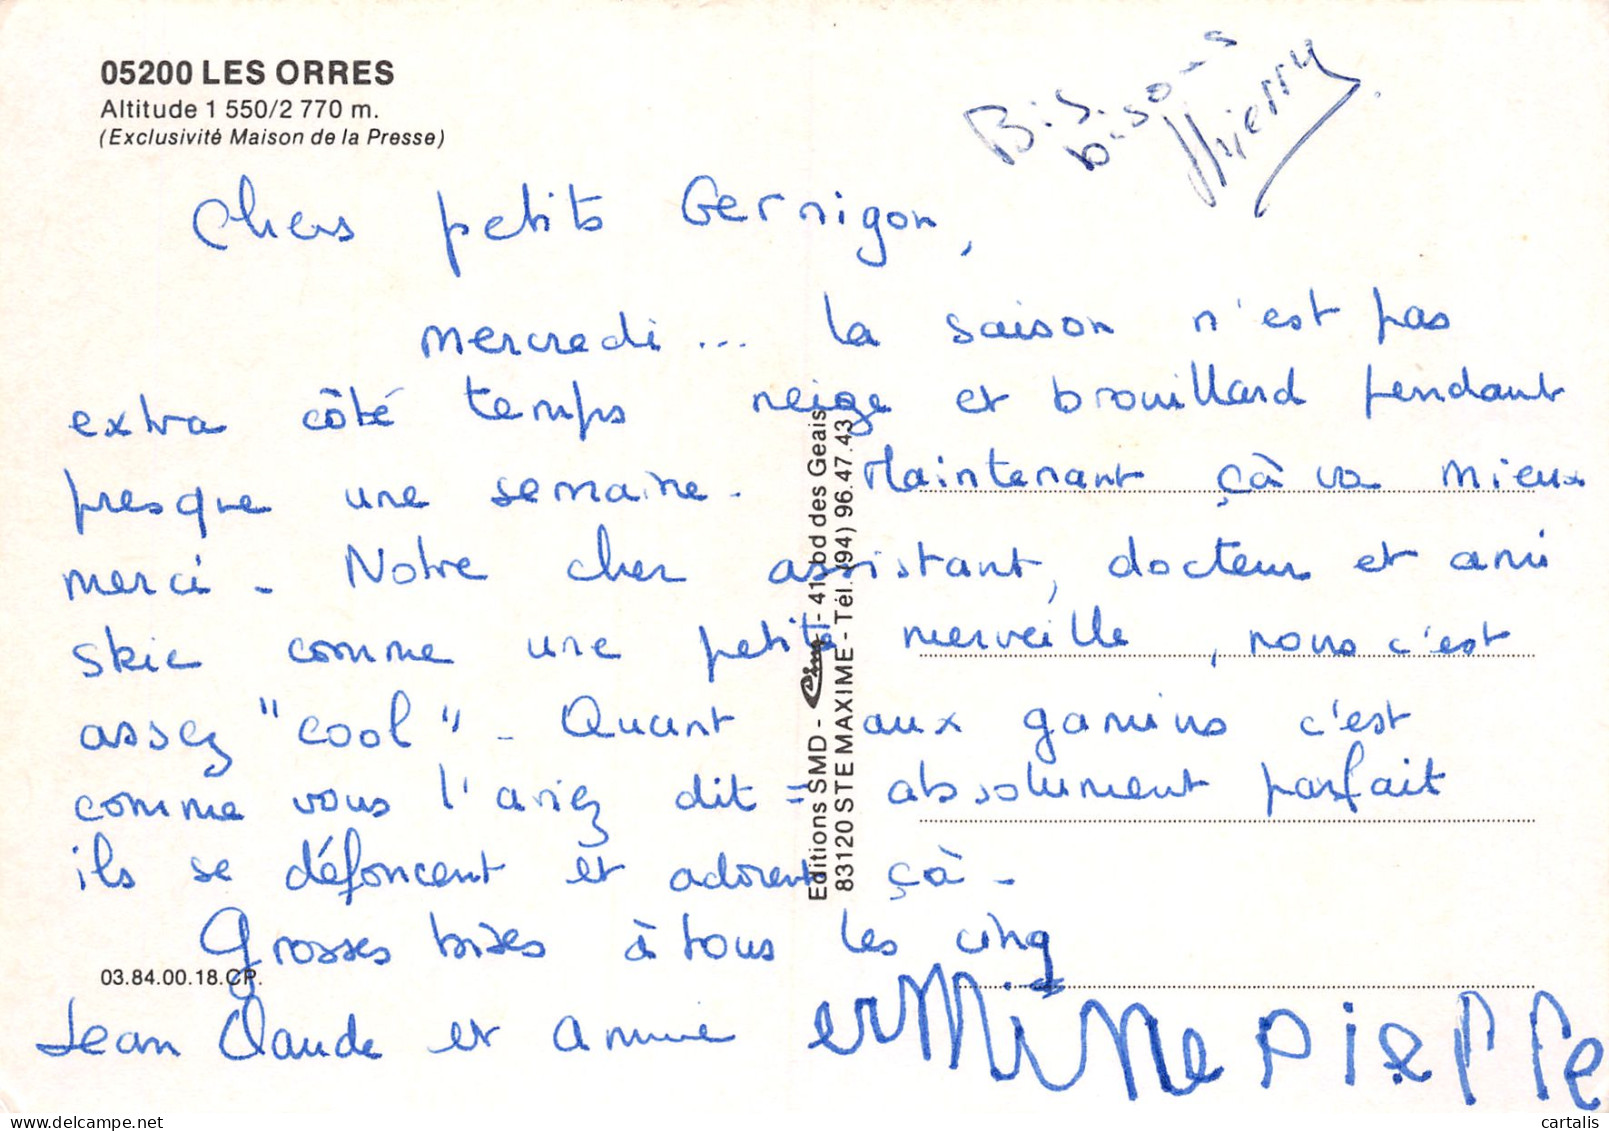 05200 LES ORRES
Altitude 1 550/2 770 m.
(Exclusivité Maison de la Presse)
Bis.
bisous
Thierry
Chers petits Gernigon,
mercredi... la saison n'est pas
extra côté temps neige et brouillard pendant
presque une semaine. Maintenant çà va mieux
merci - Notre cher assistant, docteur et ami
skie comme une petite merveille, nous c'est
assez "cool" - Quant aux gamins c'est
comme vous l'aviez dit = absolument parfait
ils se défoncent et adorent çà -
Grosses bises à tous les cinq
Jean Claude et Annie erMiNe PieRRe
03.84.00.18.CP.
Editions SMD - Cim - 41 bd des Geais
83120 STE MAXIME - Tél. (94) 96.47.43
cartalis